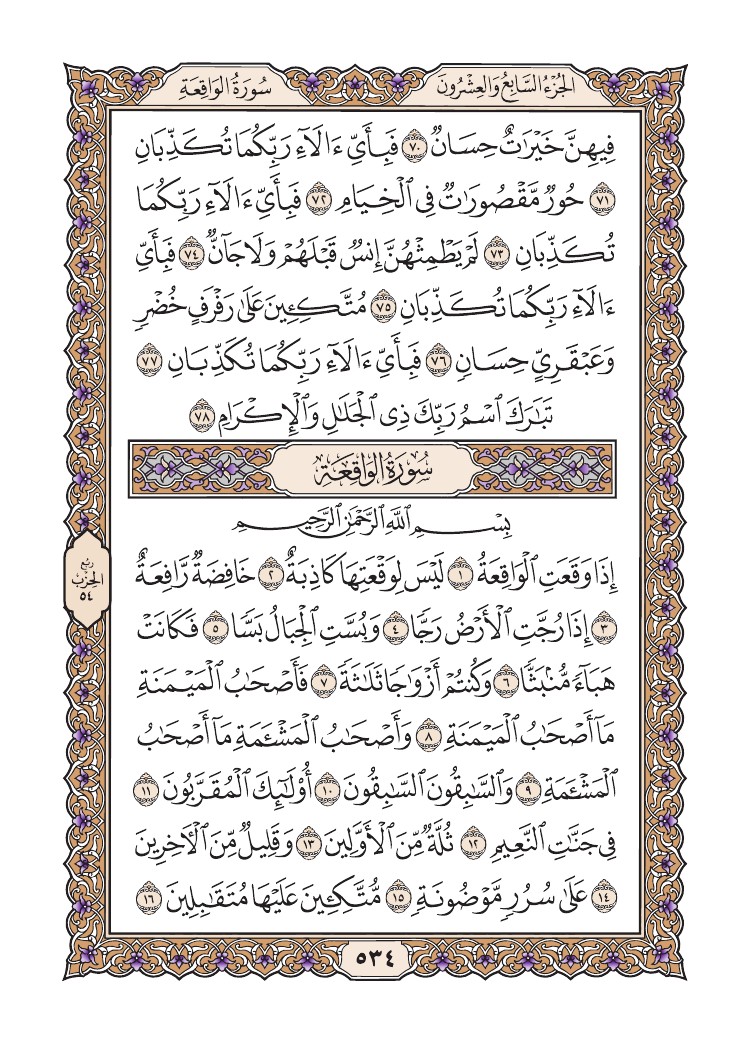 الجُزْءُ السَّابِعُ وَالعِشْرُونَ
سُورَةُ الوَاقِعَةِ
فِيهِنَّ خَيْرَٰتٌ حِسَانٌ ٧٠ فَبِأَيِّ ءَالَآءِ رَبِّكُمَا تُكَذِّبَانِ
٧١ حُورٌ مَّقْصُورَٰتٌ فِي ٱلْخِيَامِ ٧٢ فَبِأَيِّ ءَالَآءِ رَبِّكُمَا
تُكَذِّبَانِ ٧٣ لَمْ يَطْمِثْهُنَّ إِنسٌ قَبْلَهُمْ وَلَا جَآنٌّ ٧٤ فَبِأَيِّ
ءَالَآءِ رَبِّكُمَا تُكَذِّبَانِ ٧٥ مُتَّكِـِٔينَ عَلَىٰ رَفْرَفٍ خُضْرٍ
وَعَبْقَرِيٍّ حِسَانٍ ٧٦ فَبِأَيِّ ءَالَآءِ رَبِّكُمَا تُكَذِّبَانِ ٧٧
تَبَٰرَكَ ٱسْمُ رَبِّكَ ذِي ٱلْجَلَٰلِ وَٱلْإِكْرَامِ ٧٨
سُورَةُ الوَاقِعَةِ
بِسْمِ ٱللَّهِ ٱلرَّحْمَٰنِ ٱلرَّحِيمِ
إِذَا وَقَعَتِ ٱلْوَاقِعَةُ ١ لَيْسَ لِوَقْعَتِهَا كَاذِبَةٌ ٢ خَافِضَةٌ رَّافِعَةٌ
٣ إِذَا رُجَّتِ ٱلْأَرْضُ رَجًّا ٤ وَبُسَّتِ ٱلْجِبَالُ بَسًّا ٥ فَكَانَتْ
هَبَآءً مُّنۢبَثًّا ٦ وَكُنتُمْ أَزْوَٰجًا ثَلَٰثَةً ٧ فَأَصْحَٰبُ ٱلْمَيْمَنَةِ
مَآ أَصْحَٰبُ ٱلْمَيْمَنَةِ ٨ وَأَصْحَٰبُ ٱلْمَشْـَٔمَةِ مَآ أَصْحَٰبُ
ٱلْمَشْـَٔمَةِ ٩ وَٱلسَّٰبِقُونَ ٱلسَّٰبِقُونَ ١٠ أُو۟لَٰٓئِكَ ٱلْمُقَرَّبُونَ ١١
فِي جَنَّٰتِ ٱلنَّعِيمِ ١٢ ثُلَّةٌ مِّنَ ٱلْأَوَّلِينَ ١٣ وَقَلِيلٌ مِّنَ ٱلْـَٔاخِرِينَ
١٤ عَلَىٰ سُرُرٍ مَّوْضُونَةٍ ١٥ مُّتَّكِـِٔينَ عَلَيْهَا مُتَقَٰبِلِينَ ١٦
رُبْعُ
الحِزْبِ
٥٤
٥٣٤